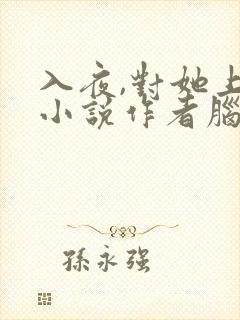 入夜,對她上
小說作者腦
孫永强